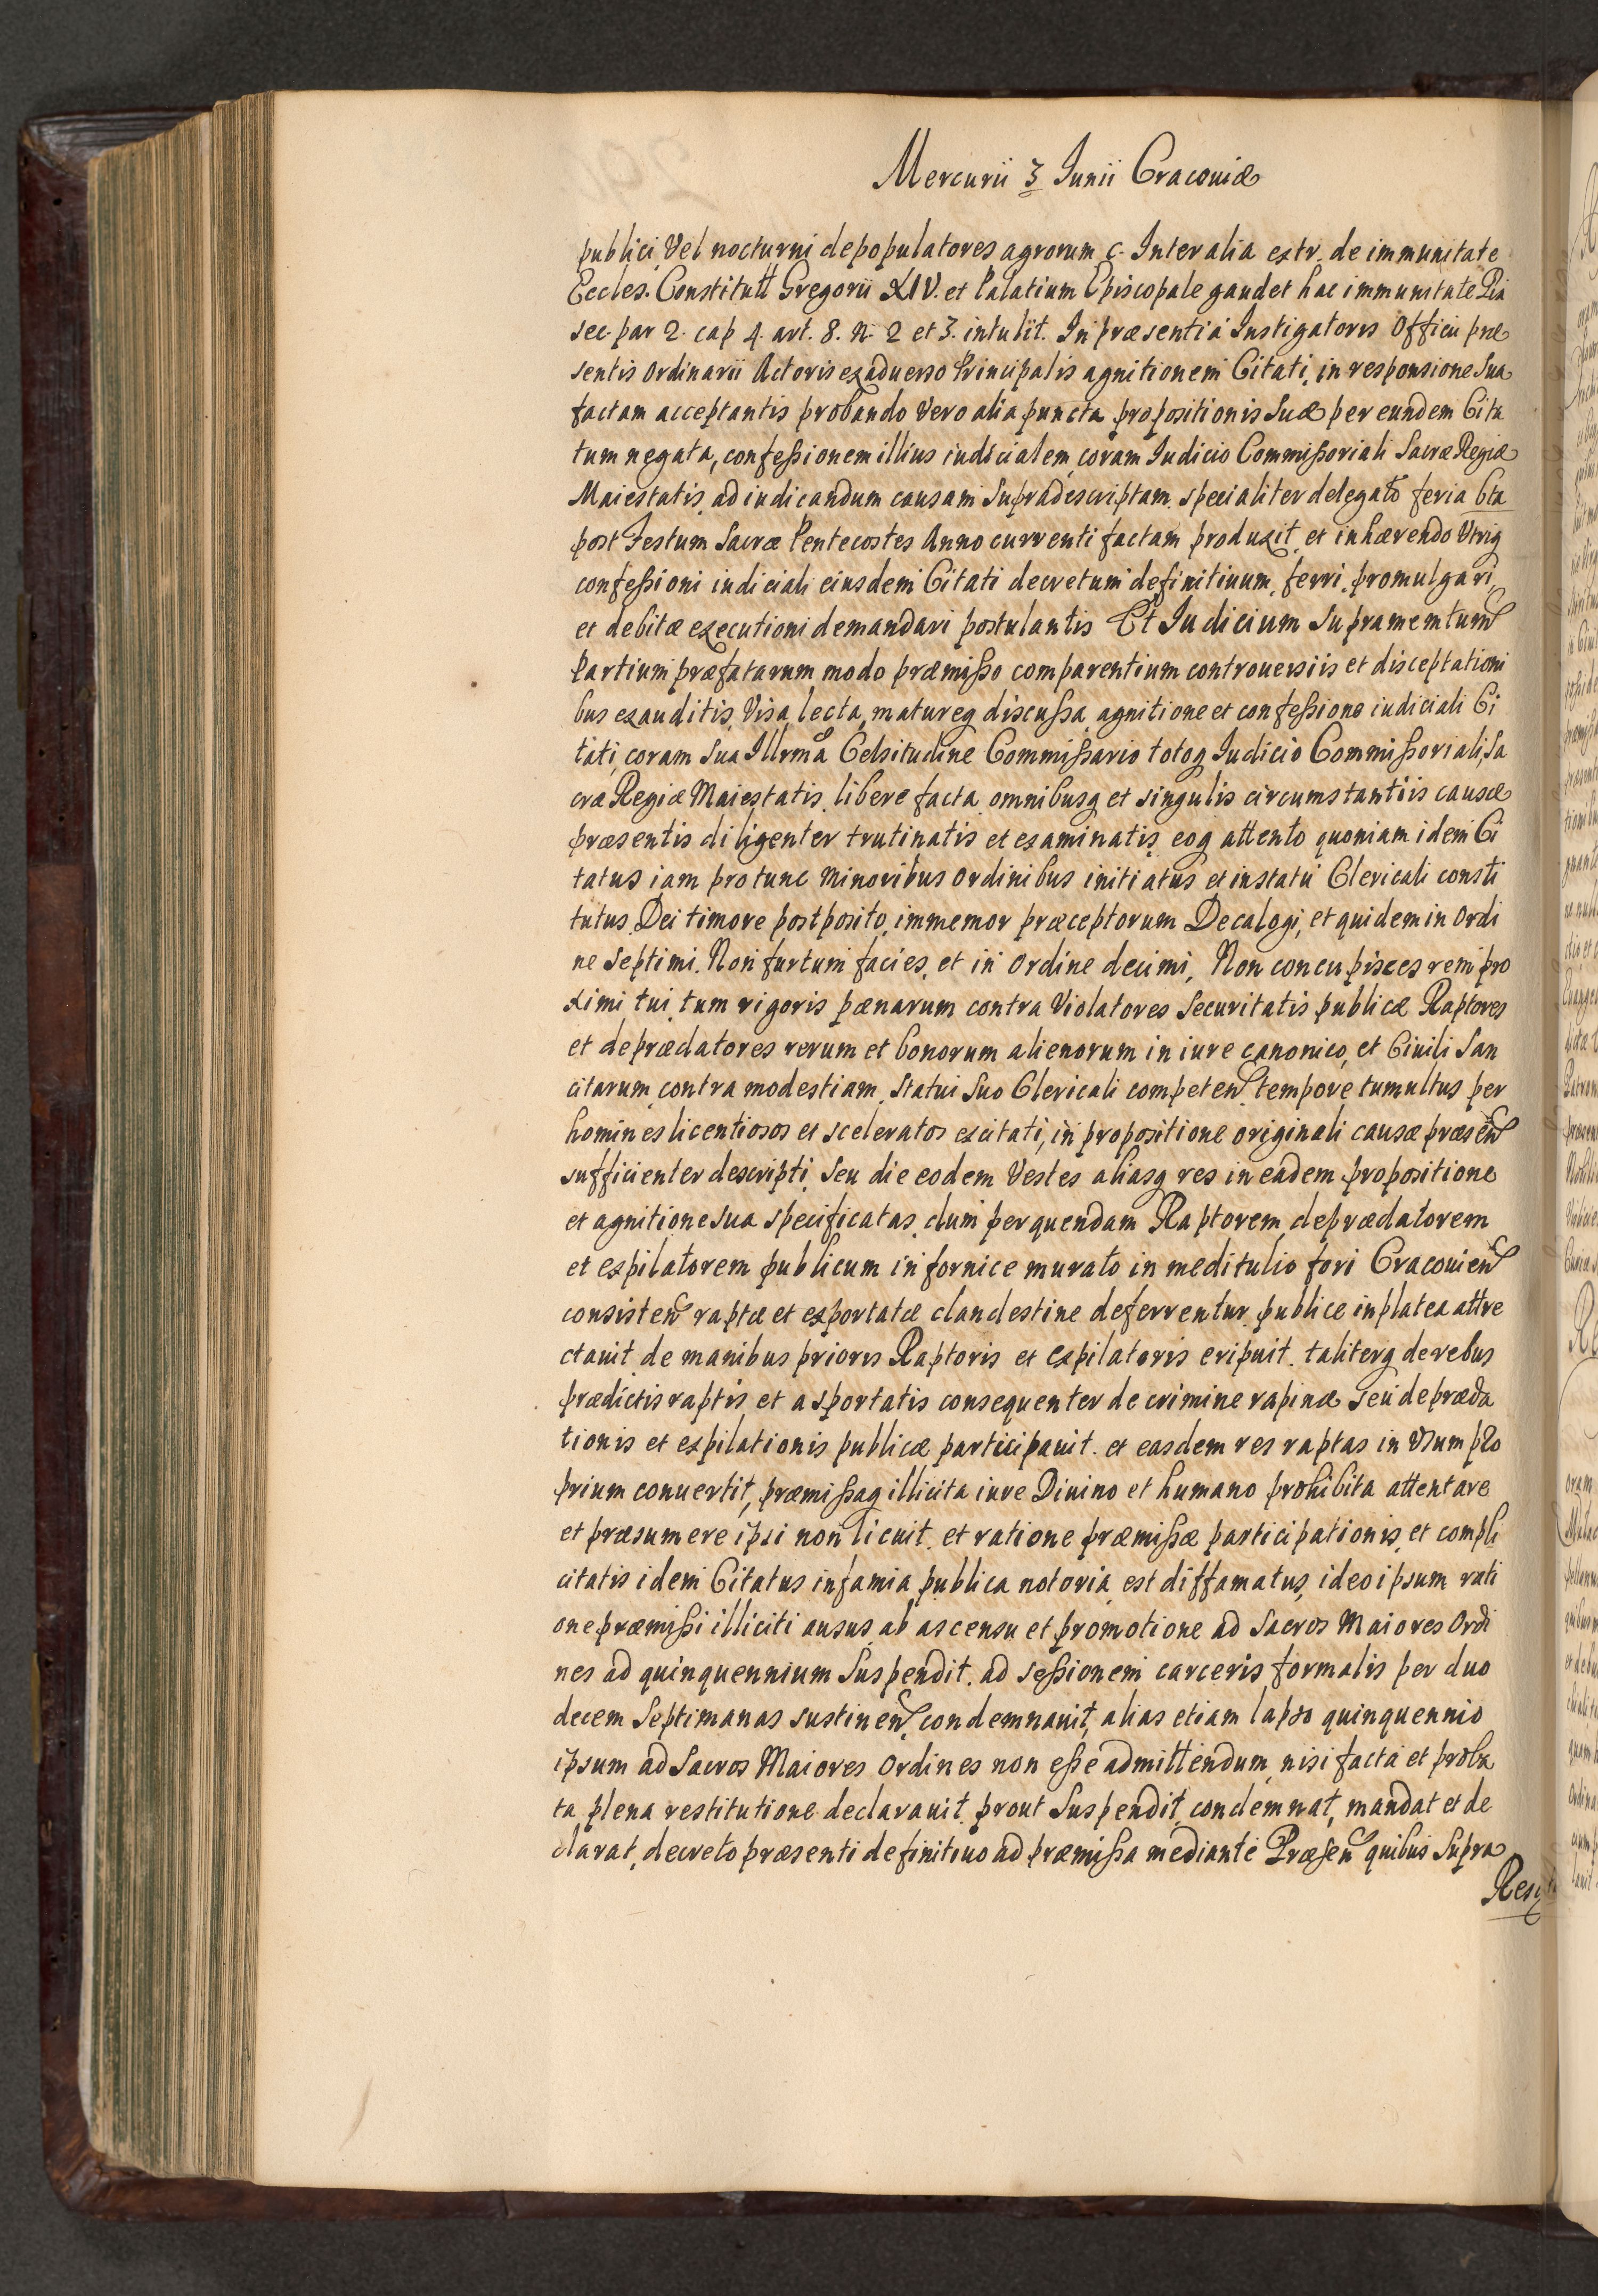 Mercurii 3 Junii Cracoviæ
publici, Vel nocturni depopulatores agrorum c. Inter alia extr. de immunitate
Eccles. Constitutt Gregorii XIV. et Palatium Episcopale gaudet hac immunitate Pia
sec. par 2. cap 4. art. 8. N. 2 et 3. intulit. In præsentia Instigatoris Officii præ
sentis Ordinarii Actoris ex adverso Principalis agnitionem Citati, in responsione Sua
factam acceptantis probando Vero alia puncta propositionis Suæ per eundem Cita
tum negata, confeßionem illius iudicialem coram Iudicio Commißoriali Sacræ Regiæ
Maiestatis, ad iudicandum causam Supradescriptam, specialiter delegato feria 6ta
post Festum Sacræ Pentecostes Anno currenti factam produxit, et inhærendo Utriq
confeßioni iudiciali eiusdem Citati decretum definitiuum, ferri, promulgari,
et debitæ executioni demandari postulantis Et Iudicium Supramemtum
Partium præfatarum modo præmißo comparentium controuersiis et disceptationi
bus exauditis, Visa, lecta, matureq discußa, agnitione et confeßione iudiciali Ci
tati, coram Sua Illrma Celsitudine Commißario totoq Iudicio Commißoriali, Sa
cræ Regiæ Maiestatis, libere facta, omnibusq et singulis circumstantiis causæ
præsentis diligenter trutinatis et examinatis, eoq attento quoniam idem Ci
tatus iam pro tunc Minoribus Ordinibus initiatus et in statu Clericali consti
tutus, Dei timore postposito, immemor præceptorum Decalogi, et quidem in Ordi
ne Septimi, Non furtum facies, et in Ordine decimi, Non concupisces rem pro
ximi tui, tum rigoris pænarum contra Violatores Securitatis publicæ Raptores
et deprædatores rerum et bonorum alienorum in iure canonico, et Ciuili San
citarum, contra modestiam, Statui Suo Clericali competen, tempore tumultus per
homines licentiosos et sceleratos excitati, in propositione originali causæ præsen
sufficienter descripti, seu die eodem Vestes aliasq res in eadem propositione
et agnitione sua specificatas, dum per quendam Raptorem, deprædatorem
et expilatorem publicum in fornice murato in meditulio fori Cracouien
consisten raptæ et exportatæ clandestine deferrentur, publice in platea attre
ctauit de manibus prioris Raptoris et expilatoris eripuit, taliterq de rebus
prædictis raptis et asportatis consequenter de crimine rapinæ seu depræda
tionis et expilationis publicæ participauit, et easdem res raptas in Usum pro
prium conuertit, præmißaq illicita iure Diuino et humano prohibita attentare
et præsumere ipsi non licuit, et ratione præmißæ participationis, et compli
citatis idem Citatus infamia publica notoria est diffamatus, ideo ipsum rati
one præmißi illiciti ausus, ab ascensu et promotione ad Sacros Maiores Ordi
nes ad quinquennium Suspendit, ad seßionem carceris formalis per duo
decem Septimanas sustinen, condemnauit, alias etiam lapso quinquennio
ipsum ad Sacros Maiores Ordines non eße admittendum, nisi facta et proba
ta plena restitutione declarauit, prout Suspendit, condemnat, mandat et de
clarat, decreto præsenti definitiuo ad præmißa mediante Præsen quibus Supra